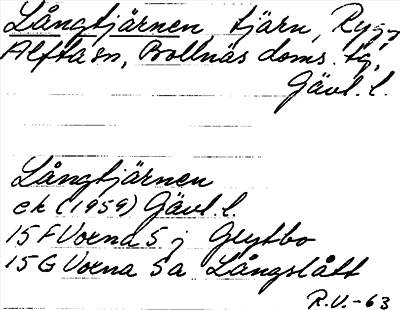 Långtjärnen tjärn, Rygg,
Alfta sn, Bollnäs doms. tg,
Gävl. l.
Långtjärnen
ek (1959) Gävl. l.
15 F Voxna 5 j Grytbo
15 G Voxna 5a Långslått
R.V.-63